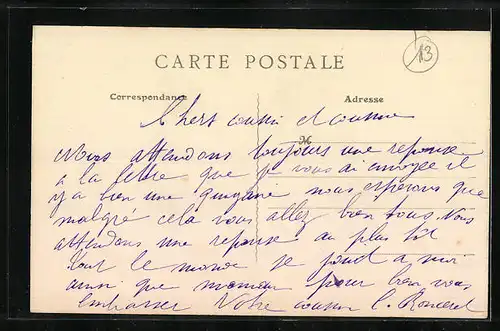 13
CARTE POSTALE
Correspondance
Adresse
Chers cousin et cousine
Nous attendons toujours une reponse
a la lettre que je vous ai envoyee il
y a bien une quinzaine nous esperons que
malgré cela vous allez bien tous. Vous
attendons une reponse au plus tôt
tout le monde se joint a moi
ainsi que maman pour bien vous
embrasser Votre cousin C.